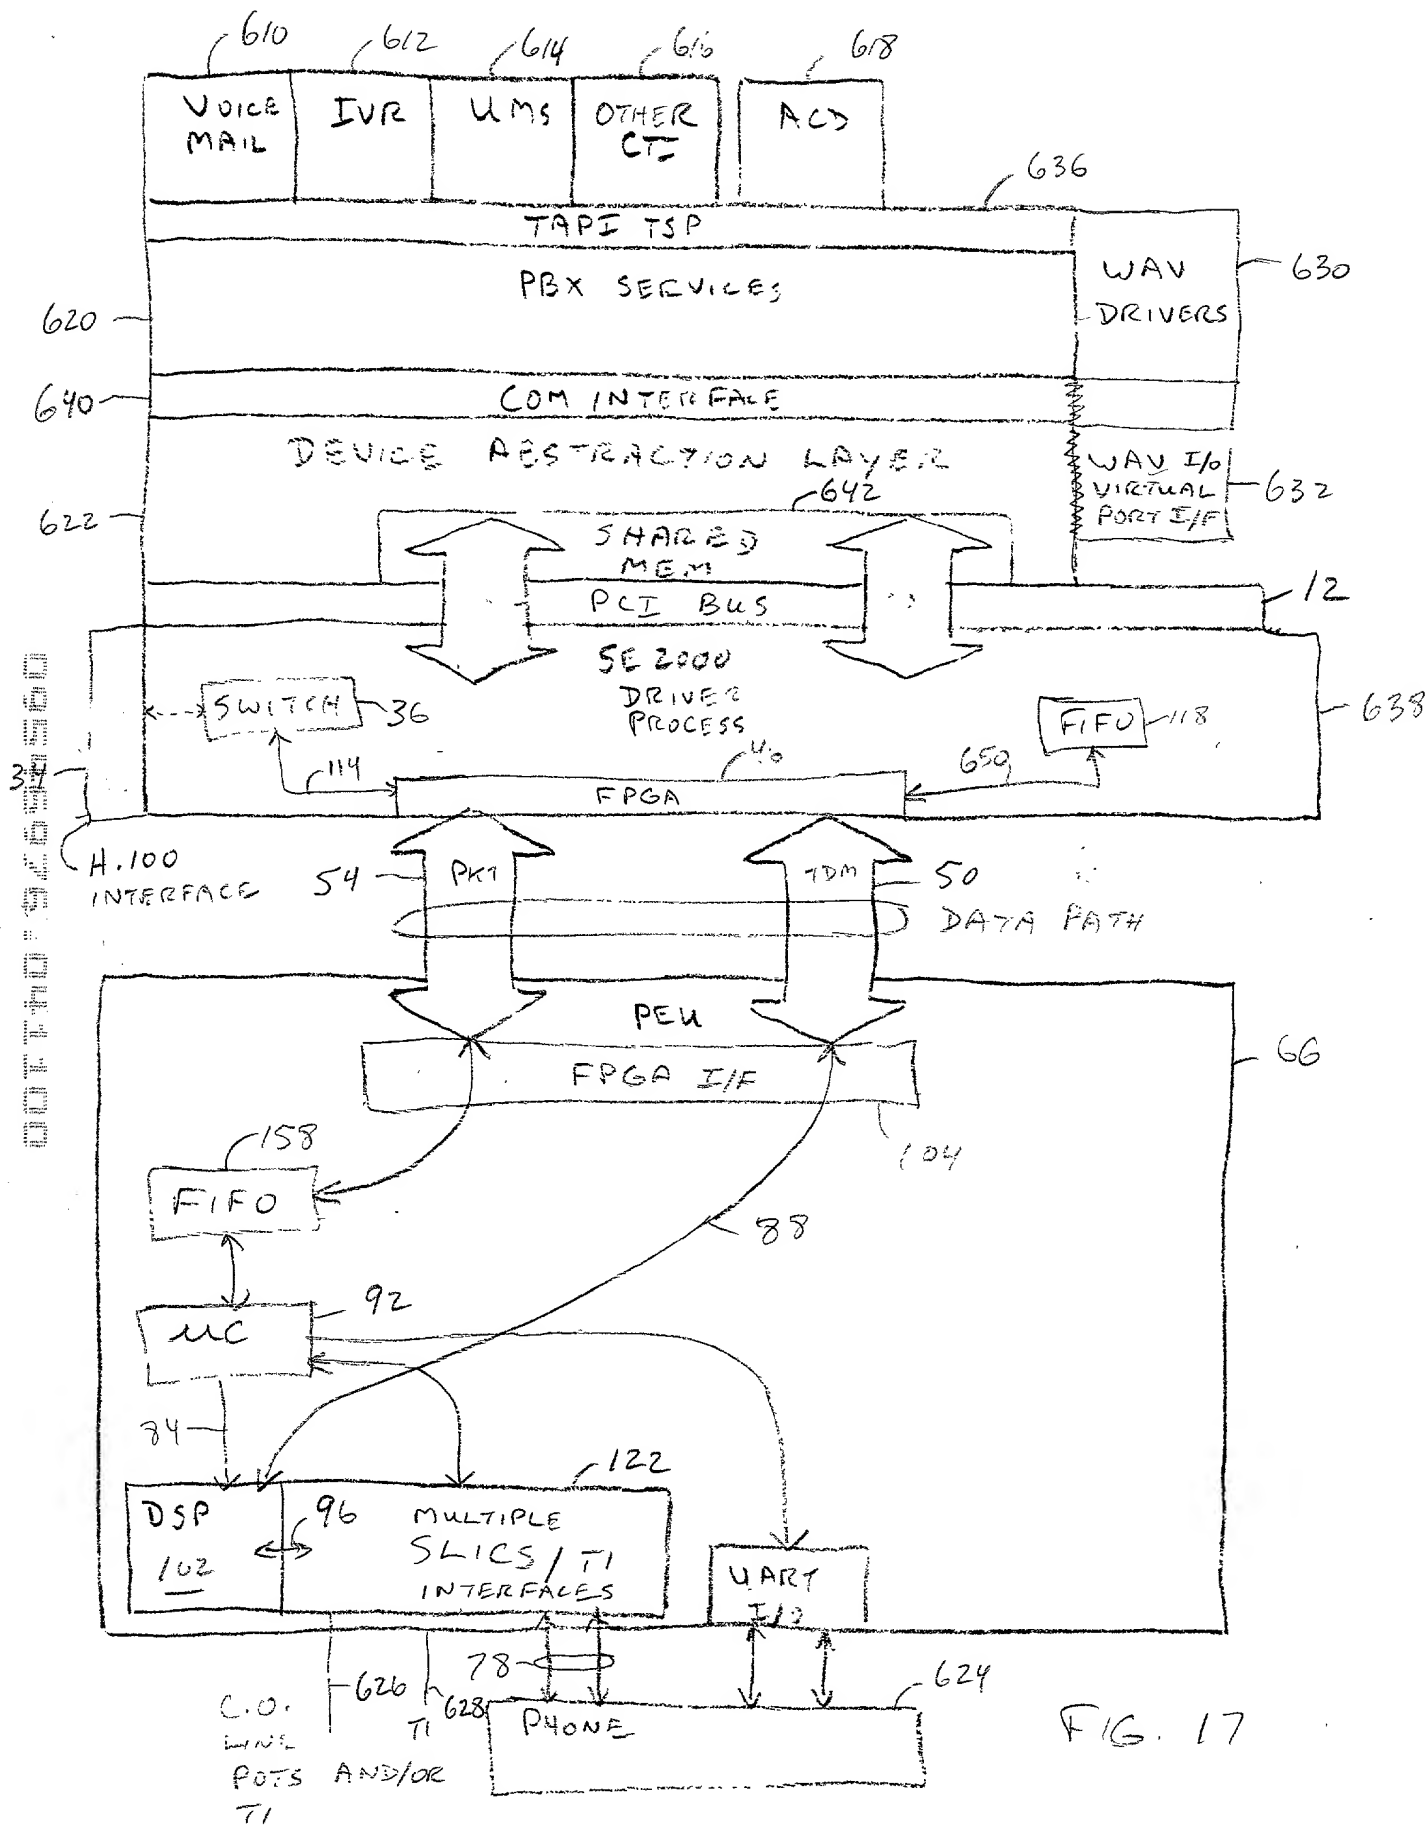 610
612
614
616
618
VOICE
MAIL
IVR
UMS
OTHER
CTI
ACD
636
TAPI TSP
PBX SERVICES
WAV
DRIVERS
630
620
640
COM INTERFACE
DEVICE ABSTRACTION LAYER
WAV I/O
VIRTUAL
PORT I/F
632
622
642
SHARED
MEM
PCI BUS
12
SE 2000
DRIVER
PROCESS
SWITCH
36
FIFO
118
638
34
114
40
650
FPGA
H.100
INTERFACE
54
PKT
TDM
50
DATA PATH
09546975.041100
PEU
66
FPGA I/F
104
158
FIFO
88
92
µC
84
122
DSP
102
96
MULTIPLE
SLICS/T1
INTERFACES
UART
I/O
78
626
628
624
C.O.
LINE
POTS AND/OR
T1
T1
PHONE
FIG. 17